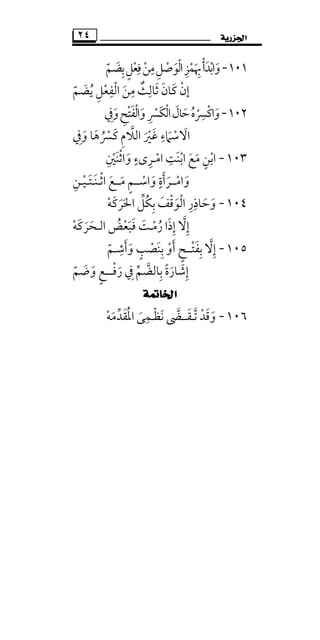 ٢٤
الجزرية
١٠١ - وَابْدَأْ بِهَمْزِ الْوَصْلِ مِنْ فِعْلٍ بِضَمّ
إِنْ كَانَ ثَالِثٌ مِنَ الْفِعْلِ يُضَمّ
١٠٢ - وَاكْسِرْهُ حَالَ الْكَسْرِ وَالْفَتْحِ وَفِي
الَاسْمَاءِ غَيْرَ اللَّامِ كَسْرُهَا وَفِي
١٠٣ - ابْنٍ مَعَ ابْنَتِ امْرِىءٍ وَاثْنَيْنِ
وَامْرَأَةٍ وَاسْمٍ مَعَ اثْنَتَيْنِ
١٠٤ - وَحَاذِرِ الْوَقْفَ بِكُلِّ الْحَرَكَهْ
إِلَّا إِذَا رُمْتَ فَبَعْضُ الْحَرَكَهْ
١٠٥ - إِلَّا بِفَتْحٍ أَوْ بِنَصْبٍ وَأَشِمّ
إِشَارَةً بِالضَّمِّ فِي رَفْعٍ وَضَمّ
الخاتمة
١٠٦ - وَقَدْ تَّقَضَّى نَظْمِىَ الْمُقَدِّمَهْ